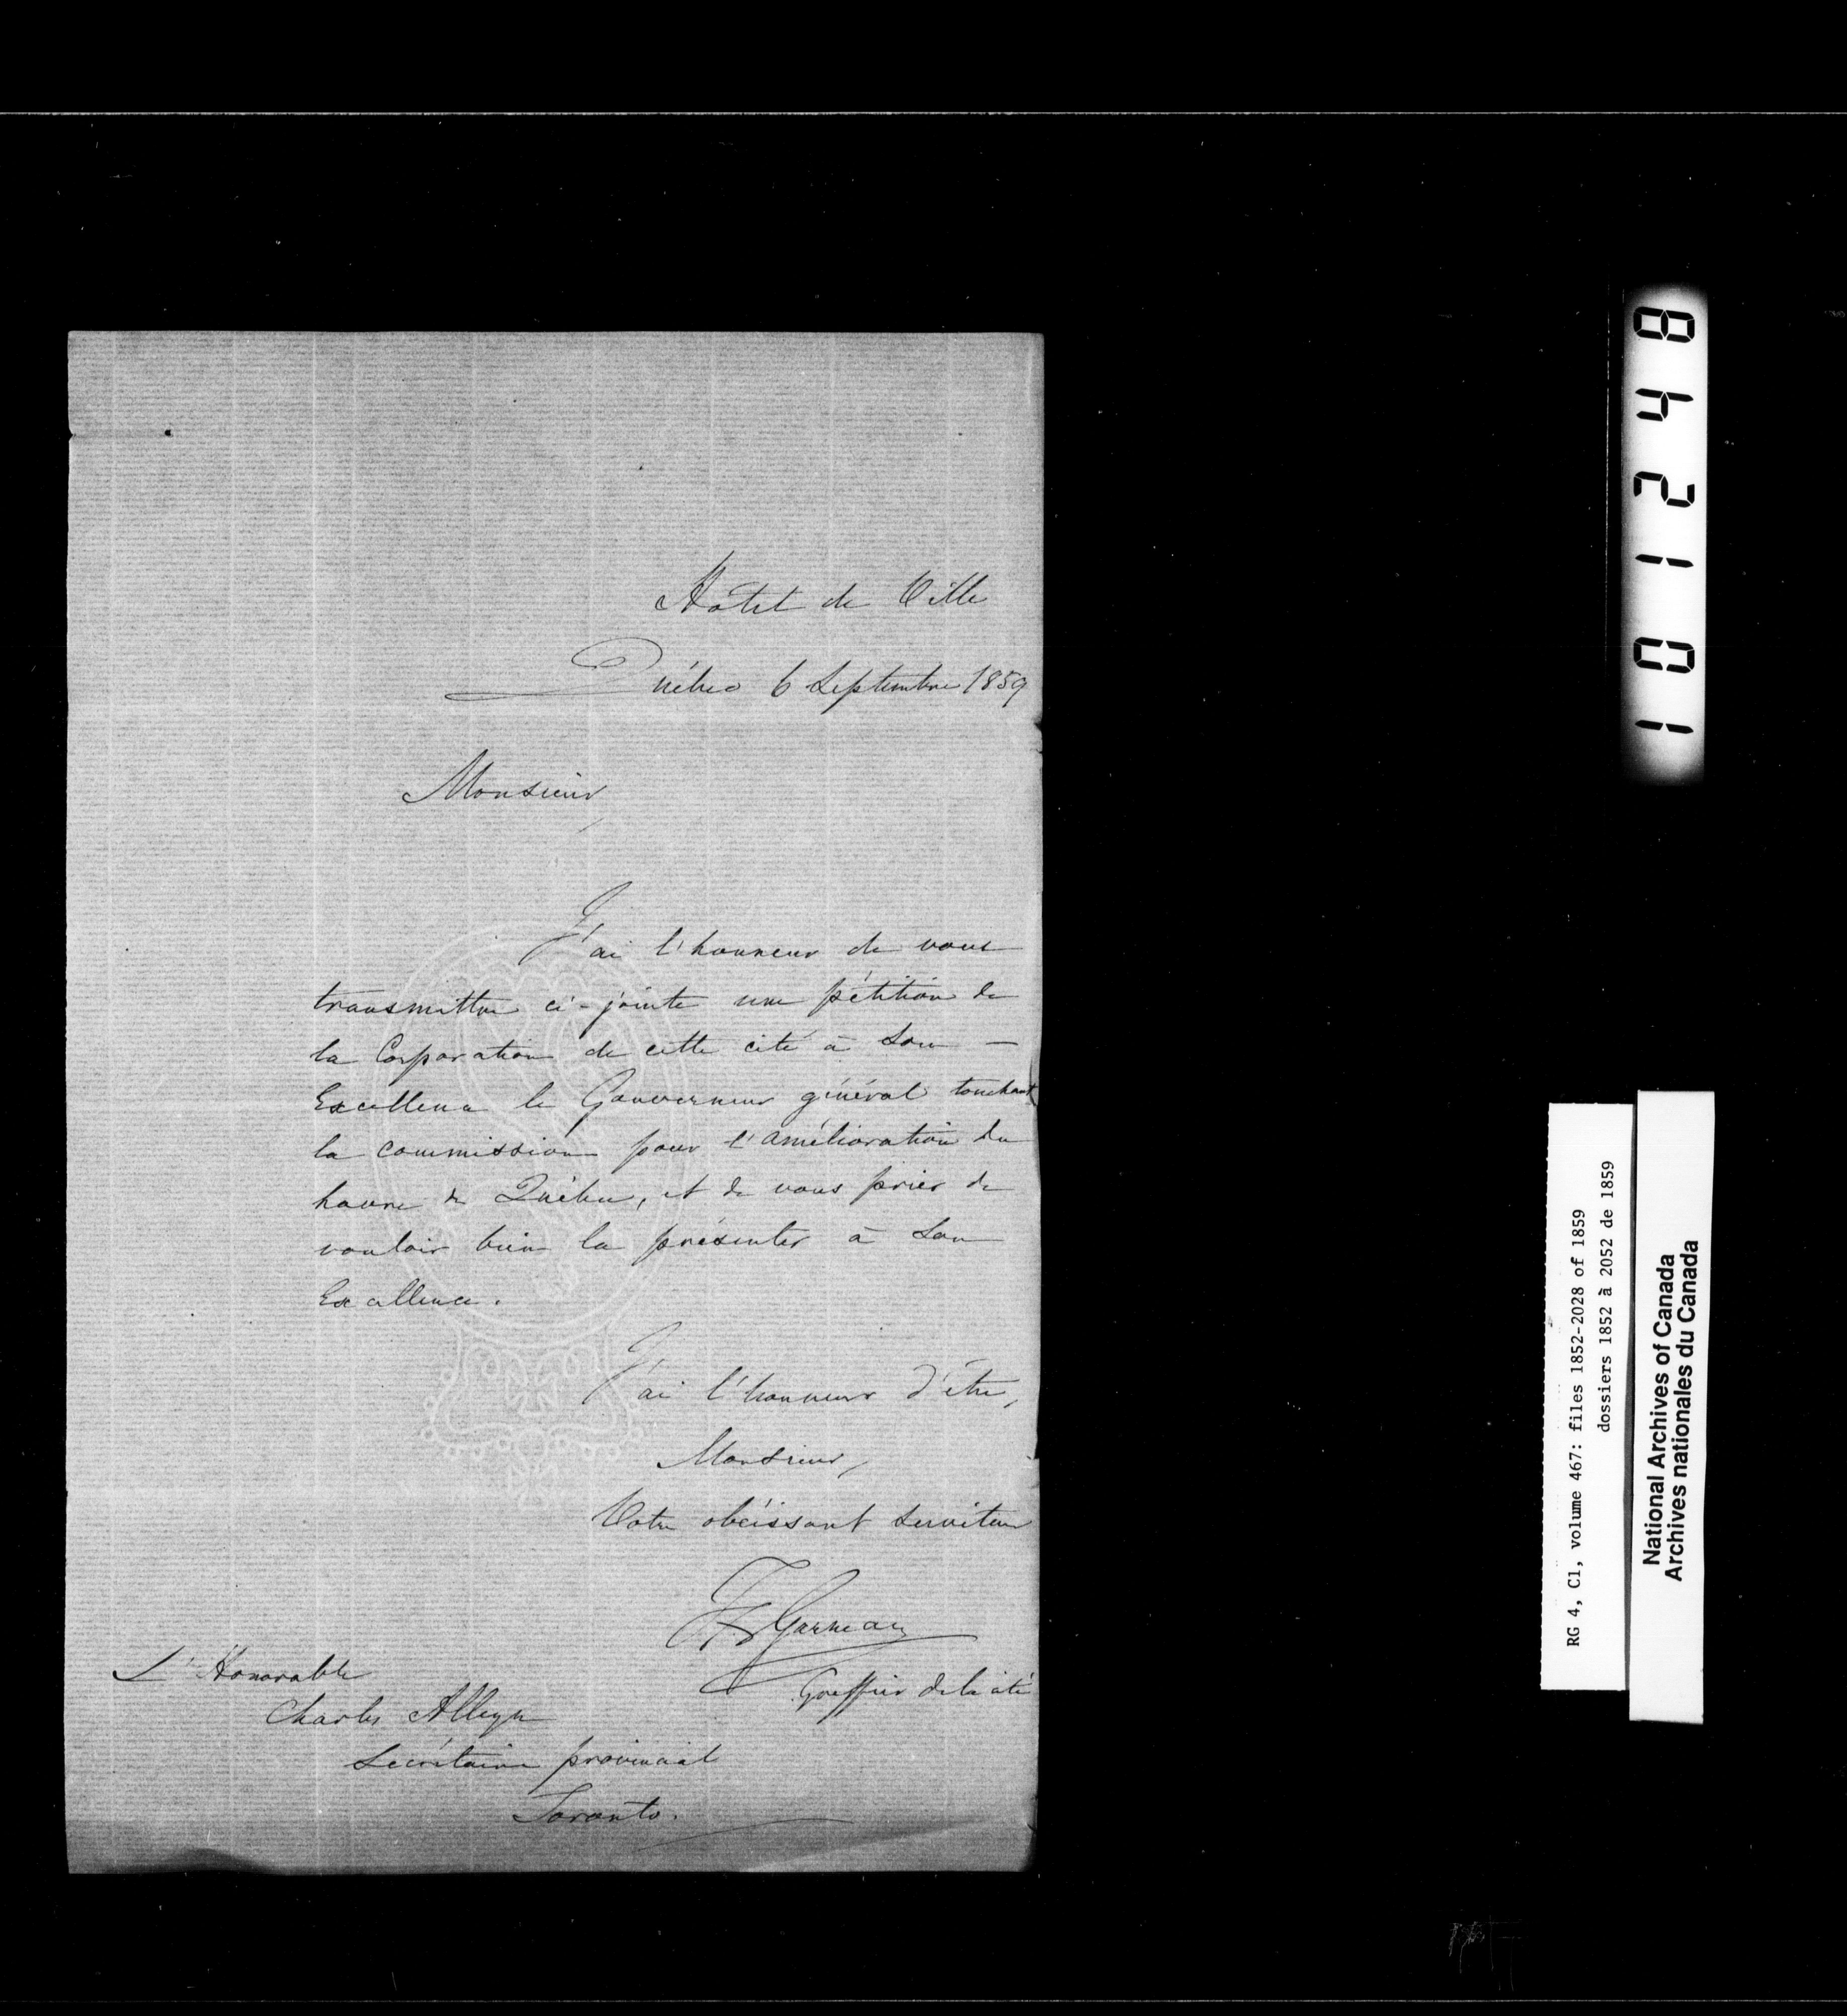 Hôtel de Ville
Québec 6 Septembre 1859
Monsieur,
J'ai l'honneur de vous
transmettre ci-jointe une pétition de
la Corporation de cette cité à Son —
Excellence le Gouverneur général touchant
la commission pour l'amélioration du
havre de Québec, et de vous prier de
vouloir bien la présenter à Son
Excellence.
J'ai l'honneur d'être,
Monsieur,
Votre obéissant Serviteur
FX Garneau
Greffier de la cité
L'Honorable
Charles Alleyn
Secrétaire provincial
Toronto.
101248
RG 4, C1, volume 467: files 1852-2028 of 1859
dossiers 1852 à 2052 de 1859
National Archives of Canada
Archives nationales du Canada